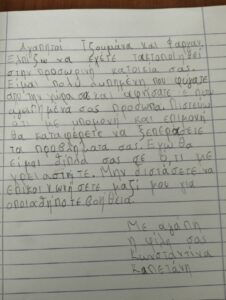 Αγαπητοί Τζουμάνα και Φαρχάν,
Ελπίζω να έχετε τακτοποιηθεί
στην προσωρινή κατοικία σας.
Είμαι πολύ λυπημένη που φύγατε
από την χώρα σας και αφήσατε πίσω
αγαπημένα σας πρόσωπα. Πιστεύω
ότι με υπομονή και επιμονή
θα καταφέρετε να ξεπεράσετε
τα προβλήματα σας. Εγώ θα
είμαι δίπλα σας σε ό,τι με
χρειαστήτε. Μην διστάσετε να
επικοινωνήσετε μαζί μου για
οποιαδήποτε βοήθεια.
Με αγάπη
η φίλη σας
Κωνσταντίνα
Καπετάνη